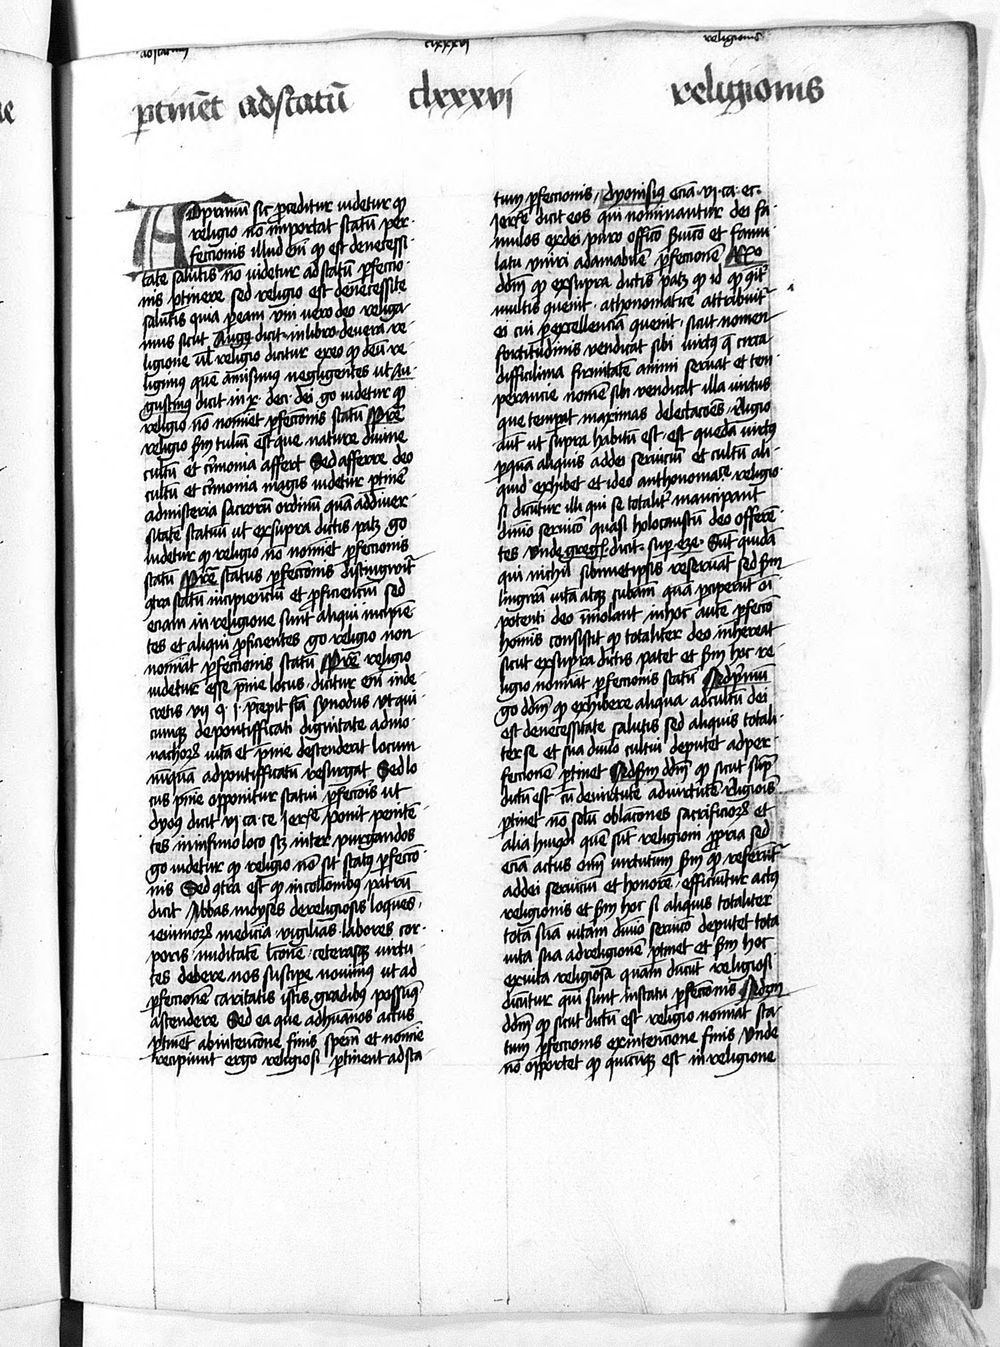 adstatum clxxxvi religionis
ptinēt adstatū clxxxvi religionis
Adprimū sic pceditur videtur qp
religio nō importat statū per
fectionis illud enī qp est denecessi
tate salutis nō videtur adstatū pfectio
nis ptinere sed religio est denecessitate
salutis quia peam vni vero deo religa
mur sicut Augꝰ dicit inlibro devera re
ligione vel religio dicitur exeo qp deū re
ligimus quē amisimus negligentes ut Au
gustinus dicit in x deci dei go videtur qp
religio nō nomīet pfectionis statū Pretē
religio scdm tuliū est que nature divine
cultū et cerimonia affert Sed afferre deo
cultū et cerimonia magis videtur ptinē
admisteria sacrorū ordinū quā addiver
sitatē statuū ut exsupra dictis patꝫ go
videtur qp religio nō nomīet pfectionis
statū Pretē status pfectionis distinguitr
contra statū incipienciū et pficienciū sed
eciam in religione sunt aliqui incipiē
tes et aliqui pficientes go religio non
nomīat pfectionis statū Pretē religio
videtur esse pnie locus dicitur enī inde
cretis vii q i precepit sctā synodus ut qui
cumqꝫ depontifficati dignitate admo
nachorꝝ vitā et pnie descenderit locum
nūquā adpontifficatū resurgat Sed lo
cus pnie opponitur statui pfectiois ut
dyoꝰ dicit vi ca ce Ierse ponit penitē
tes in infimo loco scꝫ inter purgandos
go videtur qp religio nō sit statꝰ pfectio
nis Sed contra est qp in collonibꝰ patrū
dicit Abbas moyses dereligiosis loquēs
ieiuniorꝝ mediciā vigilias labores cor
poris nuditatē lectionē ceterasqꝫ virtu
tes debere nos suscipe novimꝰ ut ad
pfectionē caritatis istis gradibꝰ possimꝰ
ascendere Sed ea que adhumanos actus
ptinēt abintencione finis speciē et nomīe
recipiunt ergo religiosi ptinent adsta
tum pfectionis dyonisiꝰ eciā vi ca ec
Ierse dicit eos qui nominantur dei fa
mulos exdei puro officio servicio et famu
latu uniri adamabilē pfectionē Rñō
ddm qp exsupra dictis patꝫ qp id qp conitr
multis quenit athonomatice attribuitr
ei cui pexcellenciā quenit sicut nomen
fortitudinis vendicat sibi virtꝰ q circa
difficilima firmitatē animi servat et tem
perancie nomē sibi vendicat illa virtus
que tempat maximas delectaciōes religio
autē ut supra habitū est est quedā virtꝰ
pquā aliquis addei serviciū et cultū ali
quid exhibet et ideo anthonomasice religio
si dicūtur illi qui se totalitr mancipant
divino servicio quasi holocaustū deo offeren
tes Unde gregꝰ dicit sup eze Sūt quidā
qui nichil sibimetipsis reservāt sed sēsū
linguā vitā atqꝫ substāciā quā pceperūt oī
potenti deo īmolant inhoc autē pfectio
hominis consistit qp totaliter deo inhereat
sicut exsupra dictis patet et scdm hoc re
ligio nomīat pfectionis statū Ad primū
go ddm qp exhibere aliqua adcultū dei
est denecessitate salutis sed aliquis totali
ter se et sua divīo cultui deputet adper
fectionē ptinet Ad scdm ddm qp sicut supra
dictū est cū devirtute advirtutē religiois
ptinet nō solū oblaciones sacrificiorꝝ et
alia huiꝰmodi que sūt religioni ppria sed
eciā actus omīū virtutum scdm qp referūtr
addei serviciū et honorē efficiūtur actꝰ
religionis et scdm hoc si aliquis totaliter
tota suā vitam divīo servicio deputet tota
vita sua adreligionē ptinet et scdm hoc
exvita religiosa quam ducūt religiosi
dicūtur qui sunt instatu pfectionis Ad 3m
ddm qp sicut dictū est religio nomīat sta
tum pfectionis exintencione finis Unde
nō opportet qp quicūqꝫ est in religione